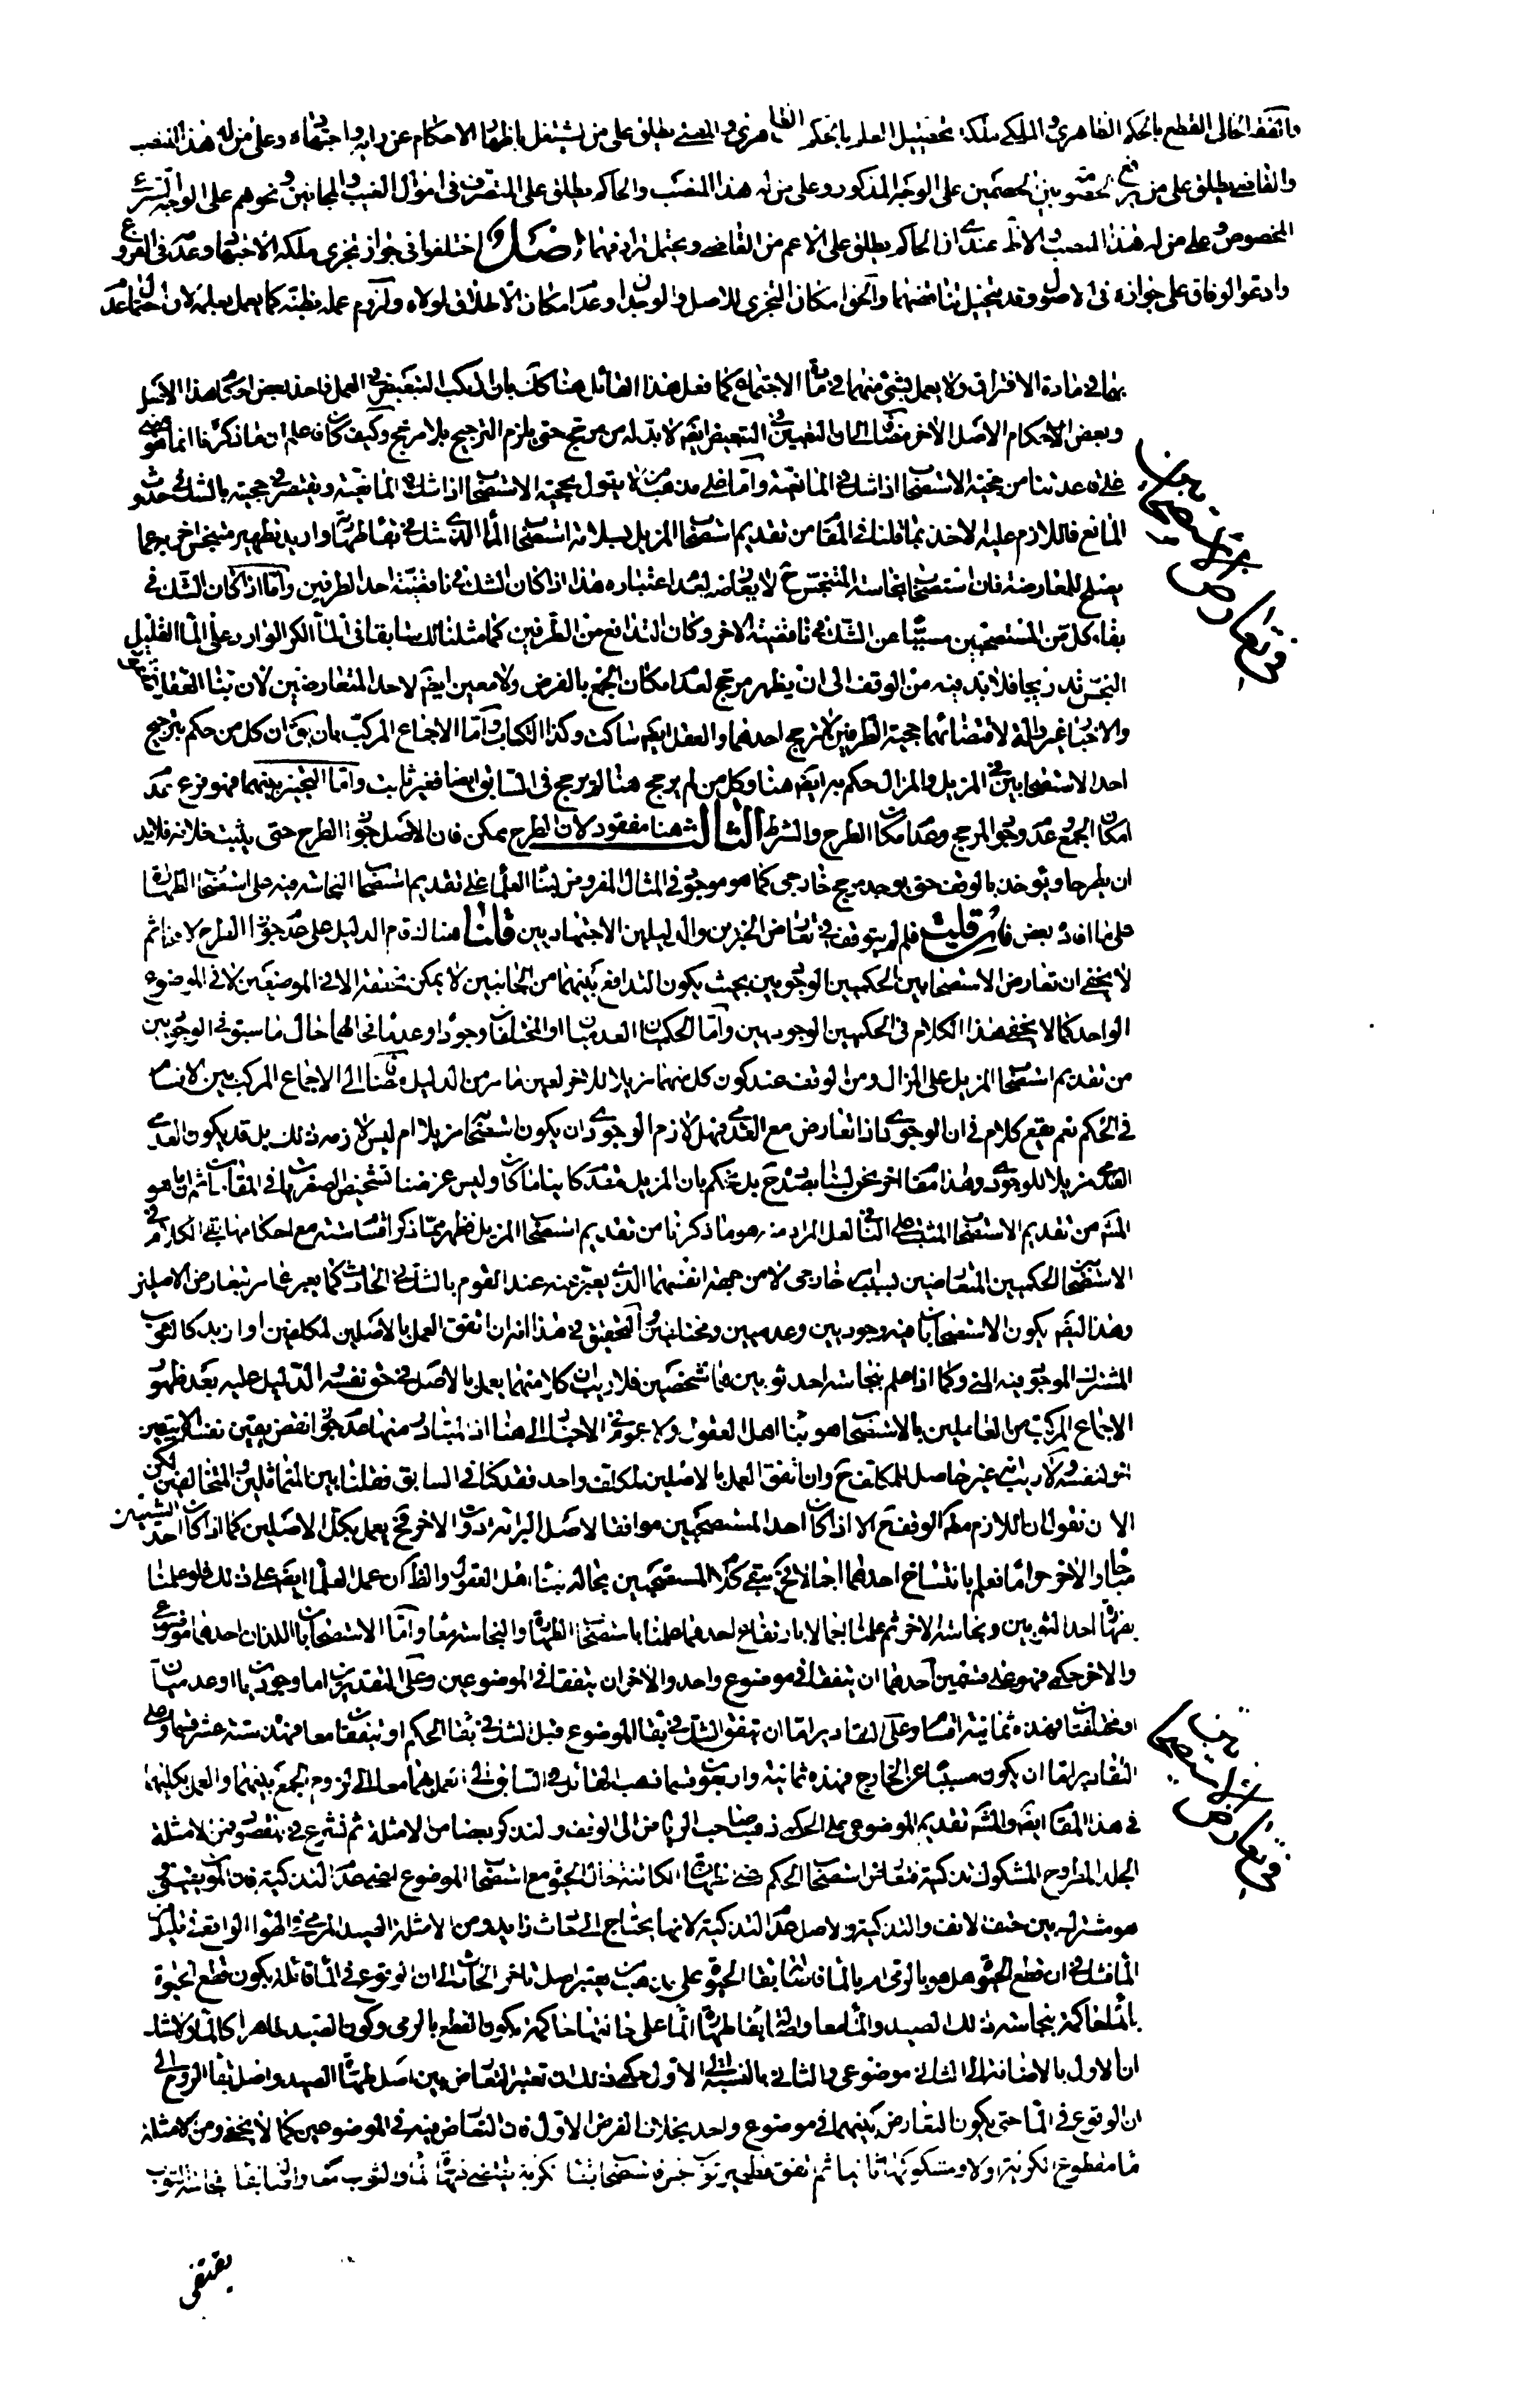 والفقه الحالى القطع بالحكم الظاهرى والملكى ملكة تحصيل العلم بالحكم الظاهرى والمفتى يطلق على من يشتغل باظهار الاحكام عن رايه واجتهاده وعلى من له هذا المنصب
والقاضى يطلق على من يرفع الخصومة بين الخصمين على الوجه المذكور وعلى من له هذا المنصب والحاكم يطلق على المتصرف فى اموال الغيب والمجانين ونحوهم على الوجه الشرعى
المخصوص وعلى من له هذا المنصب والاظهر عندى ان الحاكم يطلق على الاعم من القاضى ويحتمل ترادفهما اختلفوا فى جواز تجزى ملكة الاجتهاد وعدمه فى الفروع
وادعوا الوفاق على جوازه فى الاصول وقد يتخيل تناقضهما والحق امكان التجزى للاصل والوجدان وعدم امكان الاطلاق لولاه ولزوم عمله بظنه كما يعمل بعلمه لان احتمال عدم
بهما فى مادة الافتراق ولا يعمل بشئ منهما فى مادة الاجتماع كما فعل هذا القائل هنا كك بان ارتكب التبعيض فى العمل فاخذ بعض احكام هذا الاصل
وبعض الاحكام الاصل الاخر التبعيض ايضا لا بد له من مرجح حتى يلزم الترجيح بلا مرجح وكيف كان فاعلم ان ما ذكرنا انما هو مبنى
على قاعدتنا من حجية الاستصحاب اذا شك فى المانعية واما على مذهب من لا يقول بحجية الاستصحاب اذا شك فى المانعية ويقتصر فى حجيته بالشك فى حدوث
المانع فاللازم عليه الاخذ بما قلنا فى المقام من تقديم استصحاب المزيل لسلامة استصحاب الماء الذى شك فى بقاء طهارته واريد تطهير متنجس اخر به عما
يصلح للمعارضة فان استصحاب نجاسة المتنجس ح لا يعارضه لعدم اعتباره هذا اذا كان الشك فى ناقضية احد الطرفين واما اذا كان الشك فى
بقاء كل من المستصحبين مسببا عن الشك فى ناقضية الاخر وكان التدافع من الطرفين كما مثلنا لك سابقا فى الماء الكر الوارد على الماء القليل
النجس تدريجا فلا بد فيه من الوقف الى ان يظهر مرجح لعدم امكان الجمع بالفرض ولا معين ايضا لاحد المتعارضين لان بناء العقلاء
والاخبار غير وافية لاقتضائهما حجية الطرفين لا ترجيح احدهما والعقل ايضا ساكت وكذا الكتاب واما الاجماع المركب بان يق ان كل من حكم بترجيح
احد الاستصحابين فى المزيل والمزال حكم به ايضا هنا وكل من لم يرجح هنا لم يرجح فى السابق ايضا فغير ثابت واما التخيير بينهما فهو فرع عدم
امكان الجمع وعدم وجود المرجح وعدم امكان الطرح والشرط الثالث هنا مفقود لان الطرح ممكن فان الاصل جواز الطرح حتى يثبت خلافه فلا بد
ان يطرحا ويؤخذ بالوقف حتى يوجد مرجح خارجى كما هو موجود فى المثال المفروض لبناء العلماء على تقديم استصحاب النجاسة فيه على استصحاب الطهارة
على ما افاد بعض فان قلت فلم لم يتوقف فى تعارض الخبرين والدليلين الاجتهاديين قلنا هنالك قام الدليل على عدم جواز الطرح لا هنا ثم
لا يخفى ان تعارض الاستصحابين الحكميين الوجوديين بحيث يكون التدافع بينهما من الجانبين لا يمكن تحققه الا فى الموضعين لا فى الموضوع
الواحد كما لا يخفى هذا الكلام فى الحكميين الوجوديين واما الحكميان العدميان او المختلفان وجودا وعدما فحالهما حال ما سبق فى الوجوديين
من تقديم استصحاب المزيل على المزال ومن الوقف عند كون كل منهما مزيلا للاخر لعين ما مر من الدليل مضافا الى الاجماع المركب بين الاقسام
فى الحكم نعم يقع كلام فى ان الوجودى اذا تعارض مع العدمى فهل لازم الوجودى ان يكون استصحابه مزيلا ام ليس لازمه ذلك بل قد يكون العدمى
مزيلا للوجودى وهذا مقام اخر نحن لسنا بصدده ح بل نحكم بان المزيل مقدم كائنا ما كان وليس غرضنا تشخيص الصغريات فى المقام ثم ان ما هو
المش من تقديم الاستصحاب المثبت على النافى لعل المراد منه هو ما ذكرنا من تقديم استصحاب المزيل فظهر مما ذكر اقسام ستة مع احكامها بقى الكلام فى
الاستصحابين الحكميين المتعارضين لسبب خارجى لا من جهة انفسهما الذى يعبر عنه عند القوم بالشك فى الحادث كما يعبر عما مر بتعارض الاصلين
وهذا ايضا يكون الاستصحابان فيه وجوديين وعدميين ومختلفين والتحقيق فى هذا انه ان اتفق العمل بالاصلين لمكلفين او ازيد كالثوب
المشترك الموجود فيه المنى وكما اذا علم بنجاسة احد ثوبين هما لشخصين فلا ريب ان كلا منهما يعمل بالاصل فى حق نفسه الدليل عليه بعد ظهور
الاجماع المركب من العاملين بالاستصحاب هو بناء اهل العقول ولا عموم فى الاخبار الى هنا اذ المتبادر منها عدم جواز نقض يقين نفسه الا بيقين
اخر لنفسه ولا ريب انه غير حاصل للمكلف ح وان اتفق العمل بالاصلين لمكلف واحد فقد كنا فى السابق فصلنا بين المتماثلين والمتخالفين لكن
الان نقول ان اللازم فيهم الوقف ح الا اذا كان احد المستصحبين موافقا لاصل البرائة دون الاخر فح يعمل بكل الاصلين كما اذا كان احد الشيئين
مباحا والاخر حراما فعلم بانتساخ احدهما اجمالا فح يبقى كلا المستصحبين بحاله ببناء اهل العقول والظ كون عمل العلماء ايضا على ذلك فلو علمنا
بطهارة احد الثوبين ونجاسة الاخر ثم علمنا اجمالا بارتفاع احدهما عملنا باستصحاب الطهارة والنجاسة معا واما الاستصحابان اللذان احدهما موضوعى
والاخر حكمى فهو على قسمين احدهما ان يتفقا فى موضوع واحد والاخر ان يتفقا فى الموضوعين وعلى التقديرين اما وجوديان او عدميان
او مختلفان فهذه ثمانية اقسام وعلى التقادير اما ان يتفق الشك فى بقاء الموضوع قبل الشك فى بقاء الحكم او يتفقا معا فهذه ستة عشر قسما وعلى
التقادير اما ان يكون مسببا عن الخارج فهذه ثمانية واربعون قسما ذهب القائل فى السابق الى العمل بهما معا الى لزوم الجمع بينهما والعمل بكليهما
فى هذا المقام ايضا والمش تقديم الموضوعى على الحكمى ذهب صاحب الرياض الى الوقف ولنذكر بعضا من الامثلة ثم نشرع فى المقصود فمن الامثلة
الجلد المطروح المشكوك تذكيته فتعارض استصحاب الحكم اعنى طهارته الكائنة حال الحيوة مع استصحاب الموضوع اعنى عدم التذكية فان الموت
هو مشترك بين حتف الانف والتذكية والاصل عدم التذكية لانها يحتاج الى حادث زايد ومن الامثلة الصيد المرمى فى الهواء الواقع فى قليل من
الماء فشك فى ان قطع الحيوة هل هو بالرمى ام بالماء فاستصحاب بقاء الحيوة على مذهب يعتبر اصل تاخر الحادث الى ان الوقوع فى الماء قائلة بكون قطع الحيوة
بالماء فحاكمة بنجاسة ذلك الصيد والماء معا واصالة بقاء طهارة الماء على حالتها حاكمة بكون القطع بالرمى وكون الصيد طاهرا كالماء ولا شك
ان الاول بالاضافة الى الثانى موضوعى والثانى بالنسبة الى الاول حكمى ذلك ان تعتبر التعارض بين اصل طهارة الصيد واصل بقاء الروح الى
ان الوقوع فى الماء حتى يكون التعارض بينهما فى موضوع واحد بخلاف الفرض الاول فان التعارض فيه فى الموضوعين كما لا يخفى ومن الامثلة
ماء مقطوع الكرية اولا ومشكوكها ثانيا ثم اتفق تطهير ثوب نجس فاستصحاب بقاء كرية يقتضى طهارة الماء والثوب معا واصالة بقاء نجاسة الثوب
يقتضى
فى تعارض الاستصحابين
فى تعارض الاستصحابين